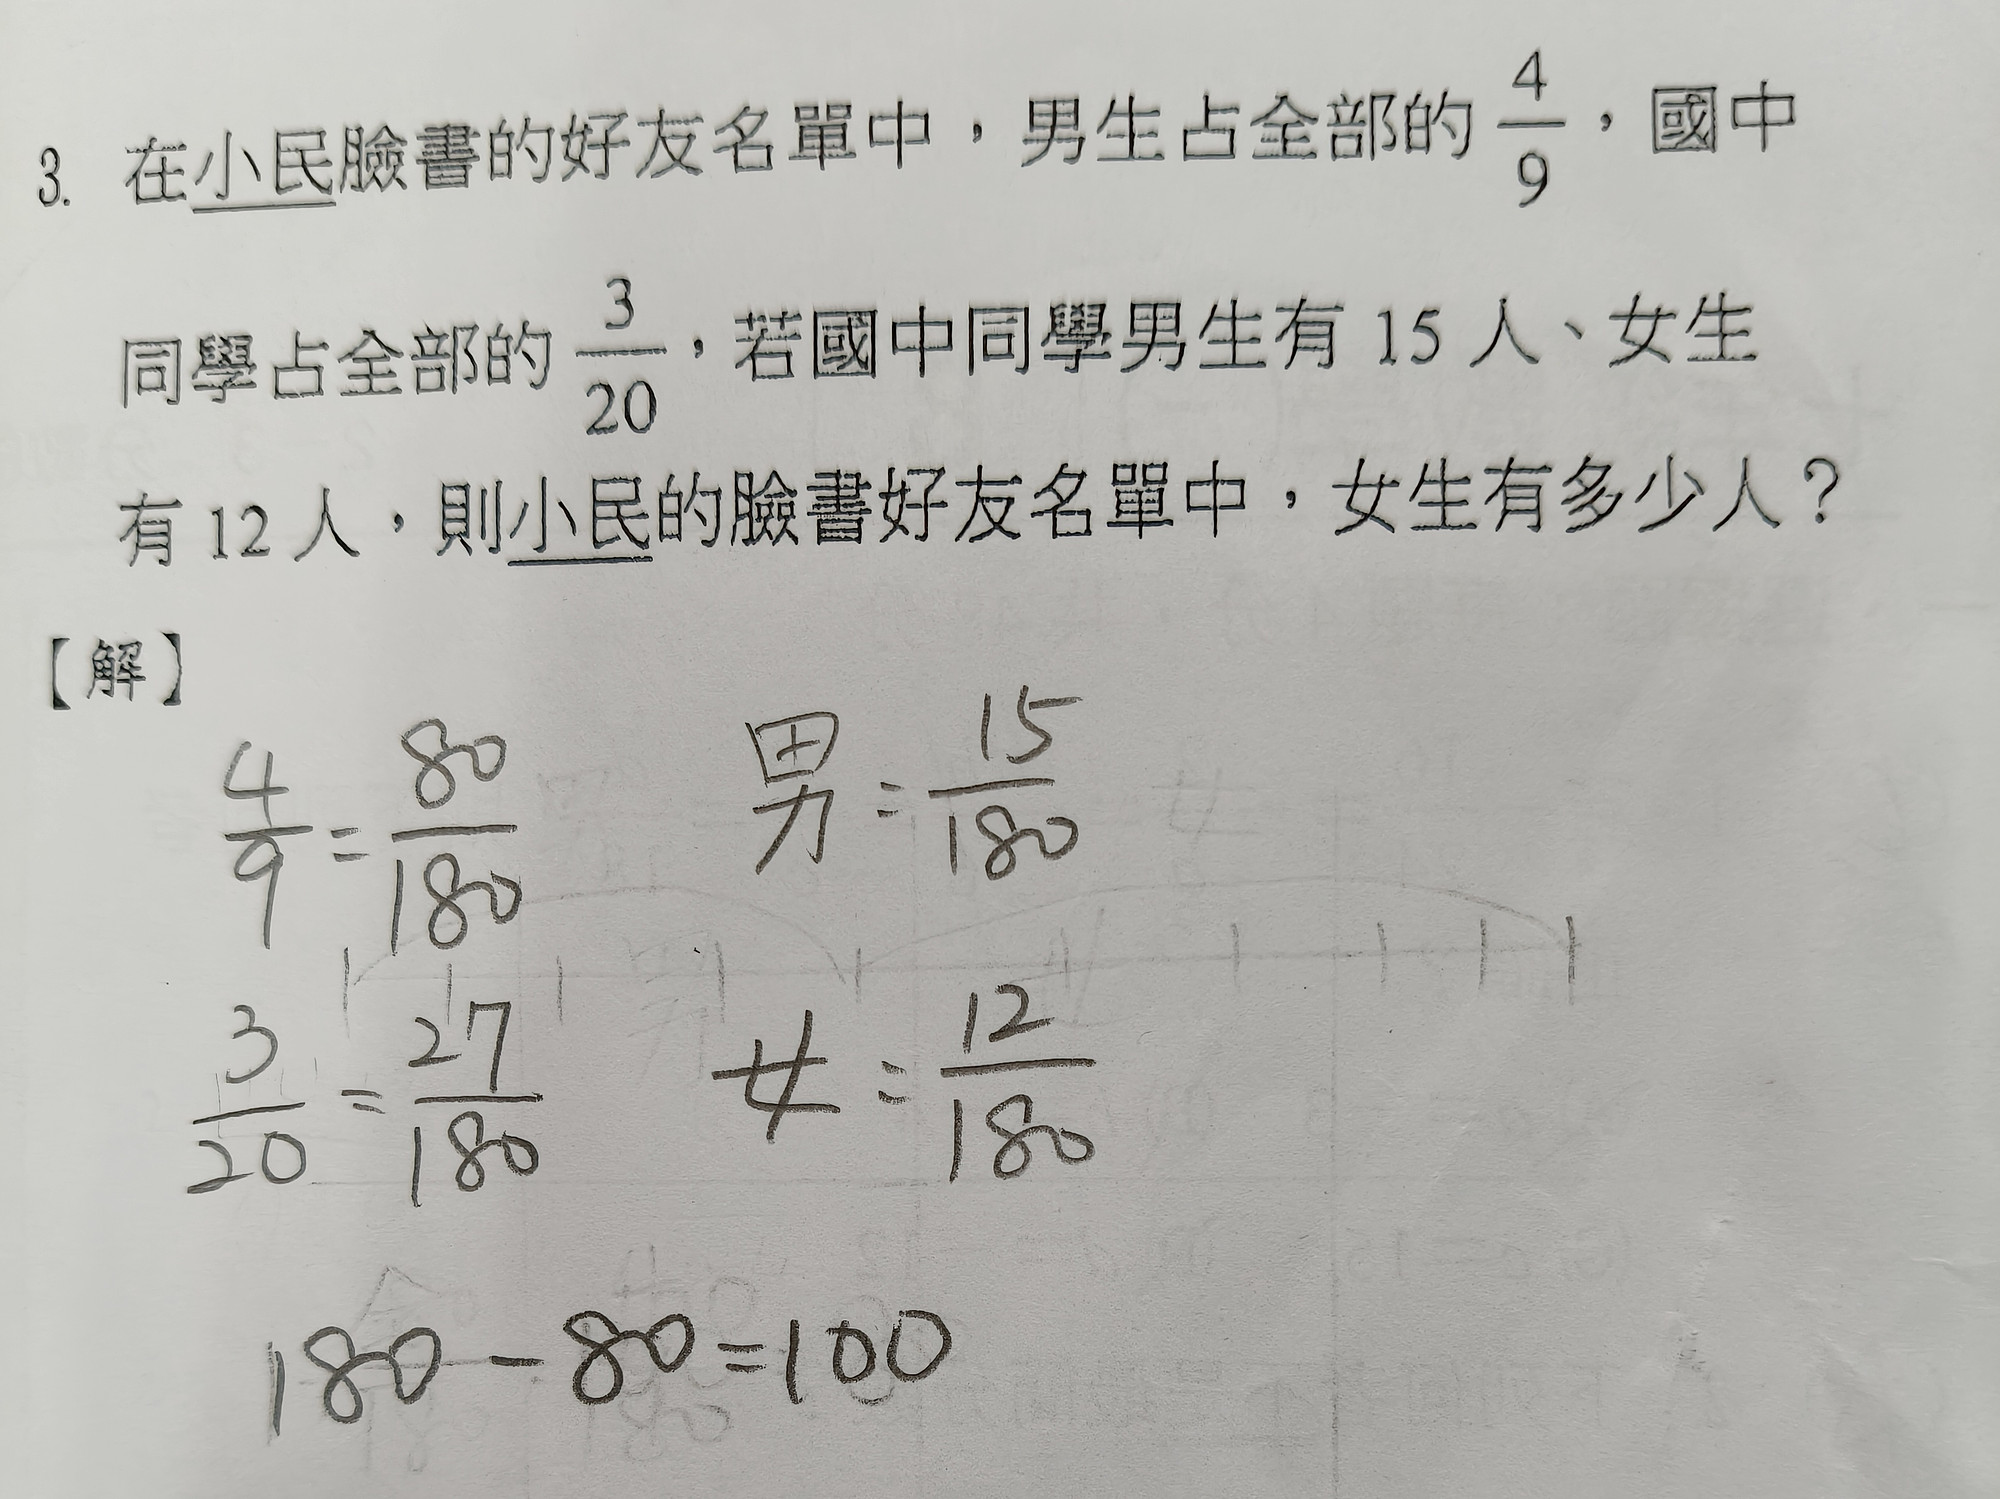 3. 在小民臉書的好友名單中，男生占全部的 4/9，國中
同學占全部的 3/20，若國中同學男生有 15 人、女生
有 12 人，則小民的臉書好友名單中，女生有多少人？
【解】
4/9 = 80/180 男 = 15/180
3/20 = 27/180 女 = 12/180
180 - 80 = 100